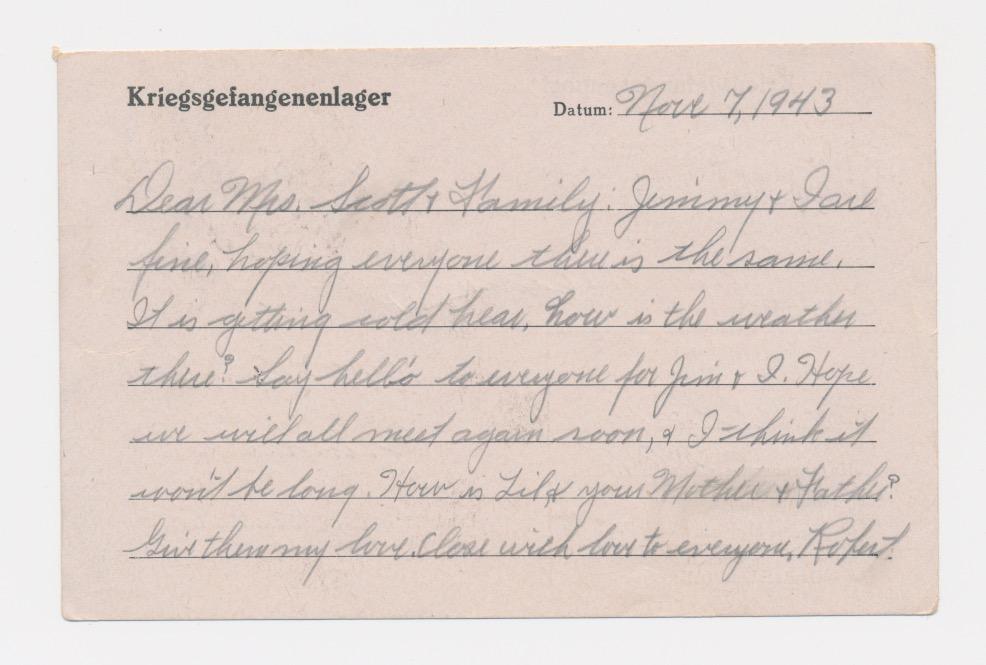 Kriegsgefangenenlager
Datum: Nov 7, 1943
Dear Mrs. Scott & Family: Jimmy & I are
fine, hoping everyone there is the same.
It is getting cold hear, how is the weather
there? Say hello to everyone for Jim & I. Hope
we will all meet again soon, & I think it
won't be long. How is Lil & your Mother & Father?
Give them my love. Close with love to everyone, Robert.